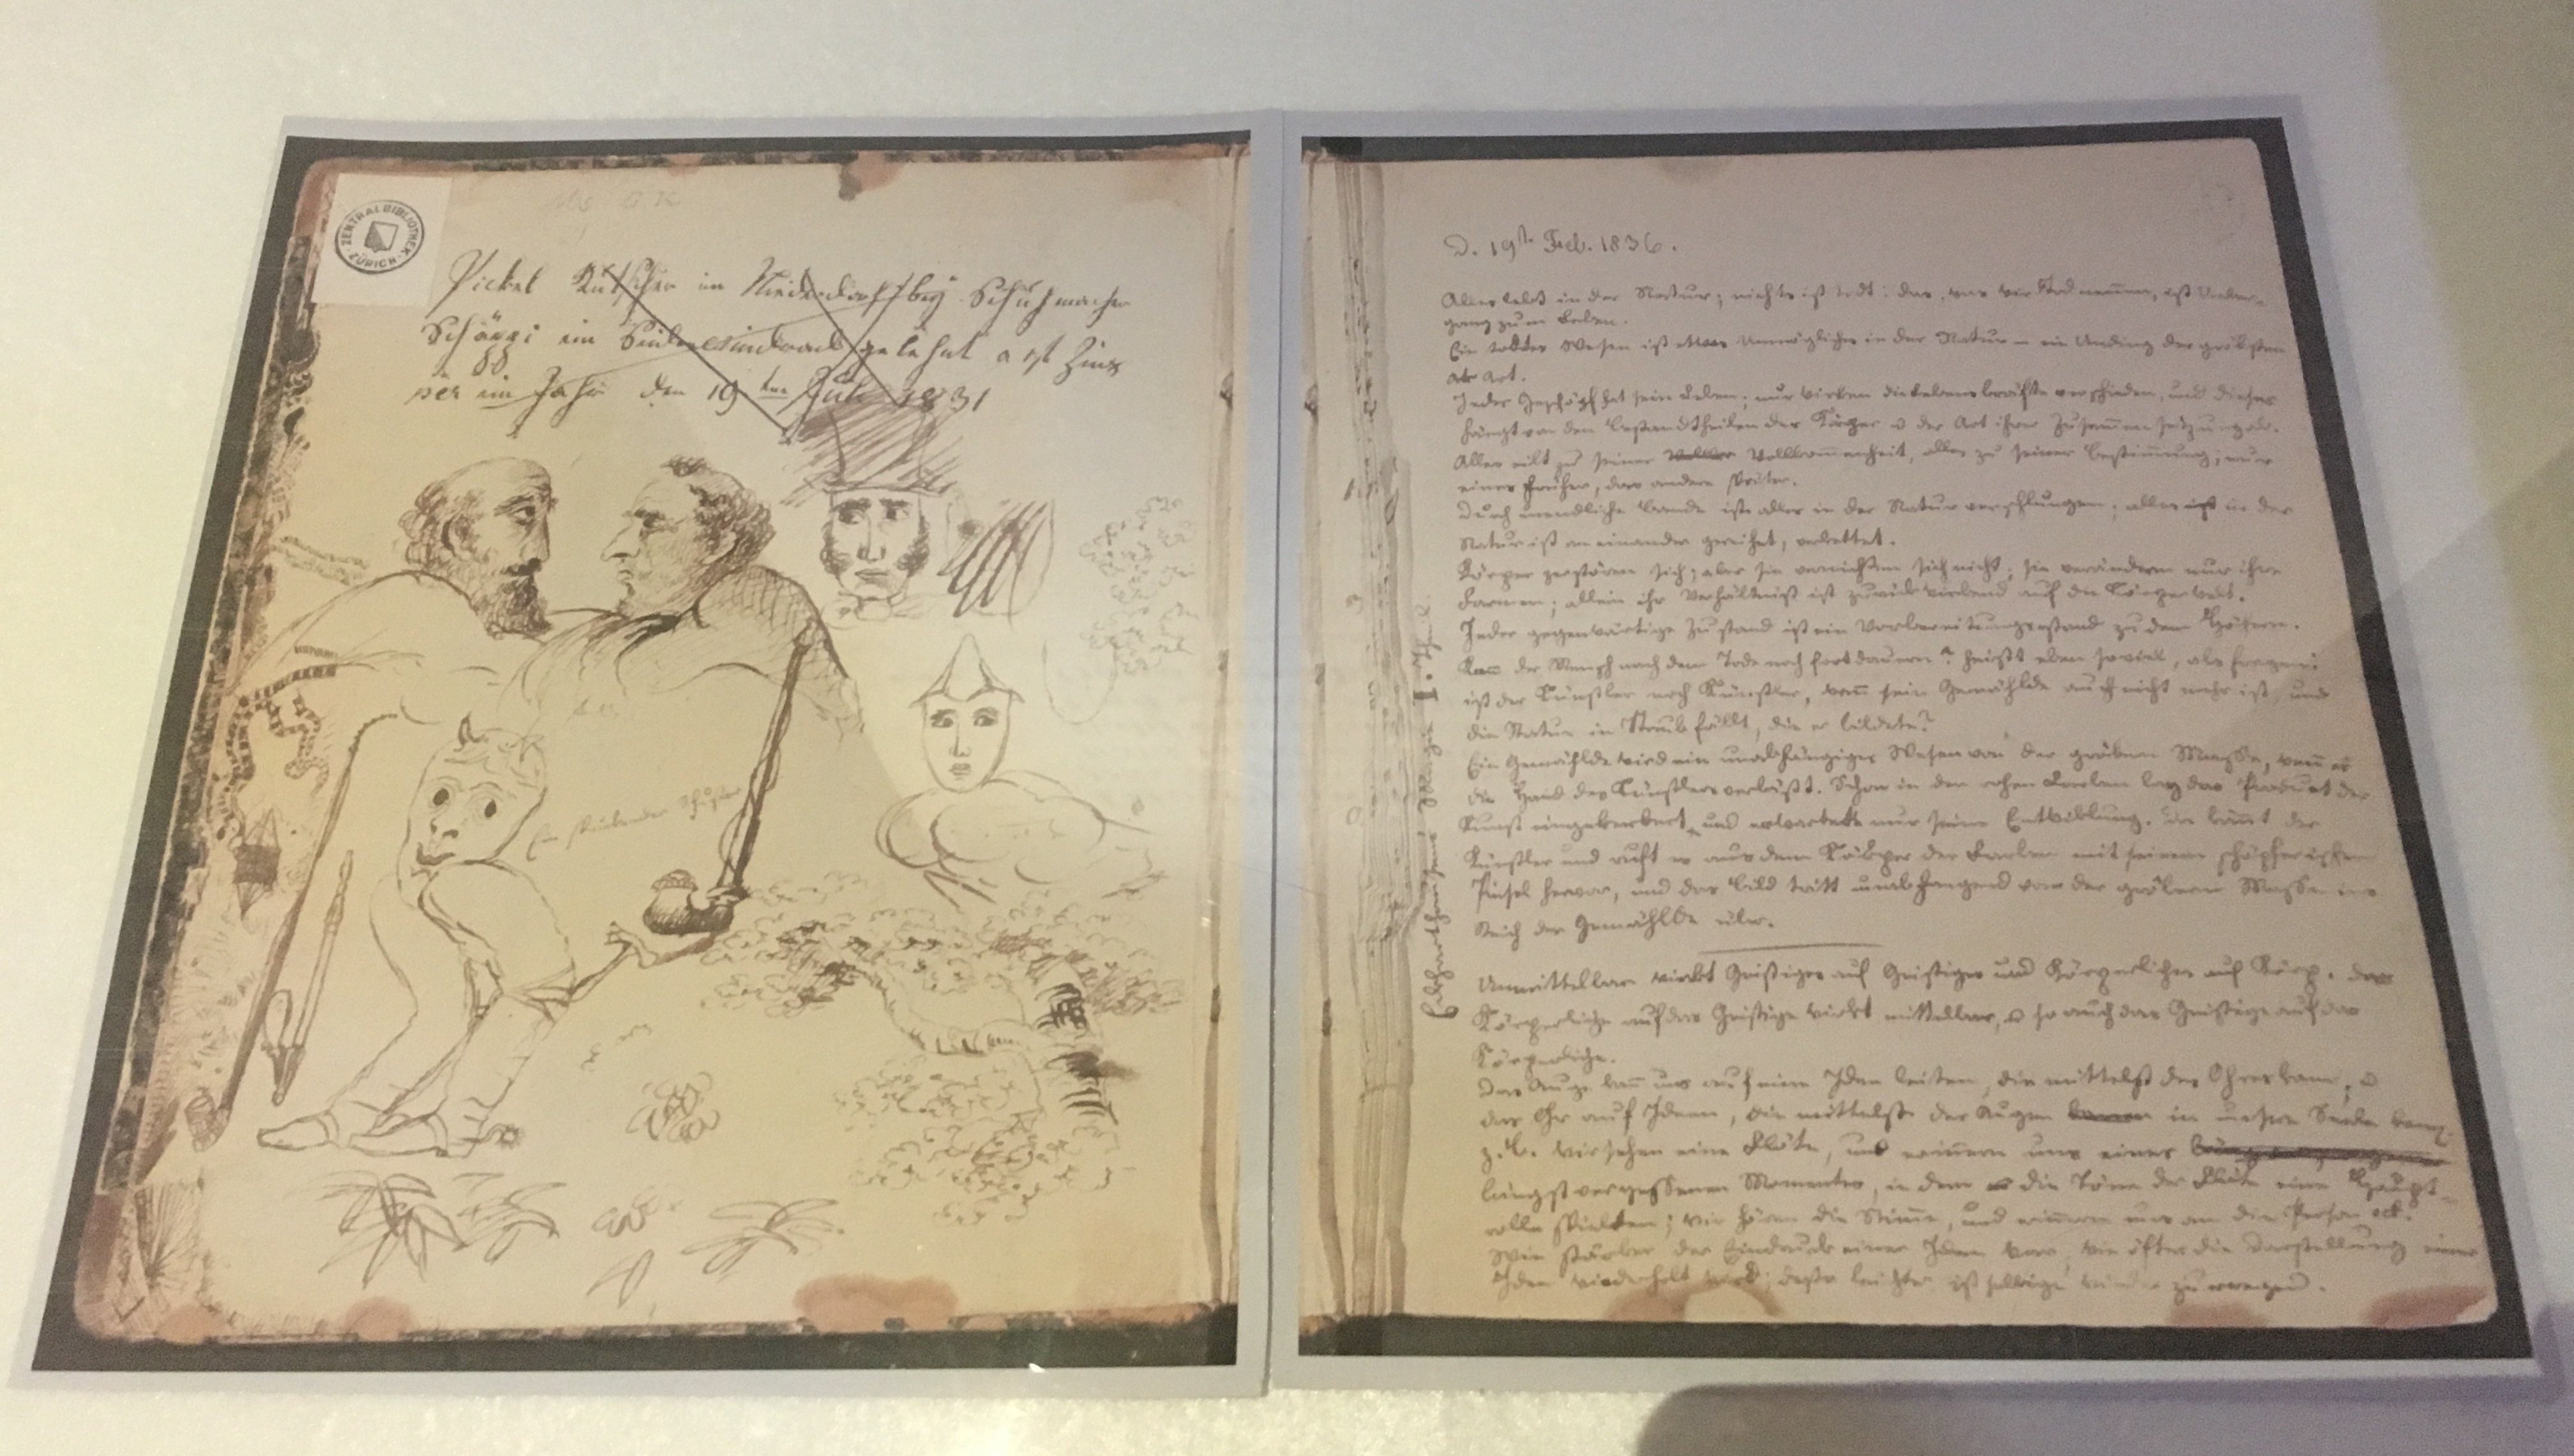 ZENTRALBIBLIOTHEK
ZÜRICH
Pickel Kutscher im Niederdorf bey Schuhmacher
Schäppi ein gelehnt a 1 fl Zins
per ein Jahr den 19ten Juli 1831
Ein sterbender Schuster
D. 19t. Feb. 1836.
Alles lebt in der Natur; nichts ist todt: das, was wir Tod nennen, ist
gang zum Leben.
Ein todtes Wesen ist etwas Unmögliches in der Natur – ein Unding der gröbsten
Art.
Jedes Geschöpf hat sein Leben; nur wirken die Lebenskräfte verschieden, und dieses
hängt von den Bestandtheilen der Körper u der Art ihrer Zusam̅ensetzung ab.
Alles eilt zu seiner Vollkom̅enheit, alles zu seiner Bestim̅ung; nur
eines früher, das andere später.
Durch unendliche Bande ist alles in der Natur verschlungen; alles ist in der
Natur ist an einander gereihet, verkettet.
Körper zerstören sich; aber sie vernichten sich nicht; sie verändern nur ihre
Formen; allein ihr Verhältniß ist zurückwirkend auf die Körperwelt.
Jeder gegenwärtige Zustand ist ein Vorbereitungsstand zu dem Höhern.
Kan̅ der Mensch nach dem Tode noch fortdauern? heißt eben so viel, als fragen:
ist der Künstler noch Künstler, wen̅ sein Gemählde auch nicht mehr ist, und
die Statue in Staub fällt, die er bildete?
Ein Gemählde wird ein unabhängiges Wesen von der gröbern Masse, wen̅ es
die Hand des Künstlers verläßt. Schon in den rohen Farben lag das Produkt der
Kunst eingekerkert, und erwartete nur seine Entwicklung. Da köm̅t der
Künstler und ruft es aus dem Körper der Farben mit seinem schöpferischen
Pinsel hervor, und das Bild tritt unabhangend von der gröbern Masse ins
Reich der Gemählde über.
Unmittelbar wirkt Geistiges auf Geistiges und Körperliches auf Körp. das
Körperliche auf das Geistige wirkt mittelbar, u so auch das Geistige auf das
Körperliche.
Das Auge kan̅ uns auf eine Idee leiten, die mittelst des Ohres kam, u
das Ohr auf Ideen, die mittelst der Augen in unsere Seele kam;
z. B. wir sehen eine Flöte, und erin̅ern uns eines
längst vergessenen Momentes, in dem die Töne der Flöte eine Haupt-
rolle spielten; wir hören die Stim̅e, und erin̅ern uns an die Person ect.
Wie stärker der Eindruck einer Idee war, wie öfter die Darstellung einer
Idee wiederholt wird; desto leichter ist selbige wieder zu erregen.